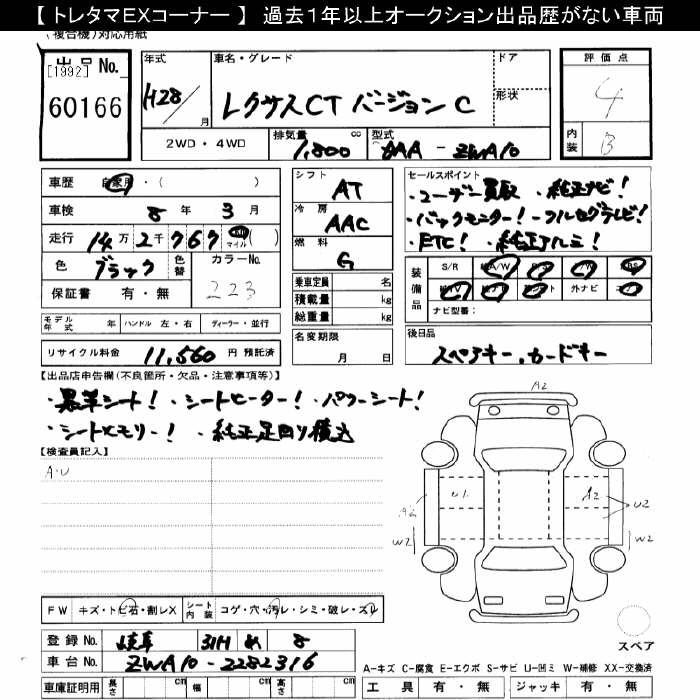 【 トレタマEXコーナー 】 過去1年以上オークション出品歴がない車両
複合機)対応用紙
出品 No.
[1992]
60166
年式
H28/
月
車名・グレード
レクサスCT バージョン C
ドア
形状
評価点
4
内装
B
2WD・4WD
排気量
1,800
cc
型式
ZWA10
車歴 自家用・( )
車検 8年 3月
走行 14万 2千 767 マイル ( )
色 ブラック 色替 カラーNo. 223
保証書 有・無
シフト
AT
冷房
AAC
燃料
G
乗車定員 名
積載量 kg
総重量 kg
セールスポイント
・ユーザー買取 ・純正ナビ!
・バックモニター! ・フルセグテレビ!
・ETC! ・純正アルミ!
装備品
S/R
A/W
P/S
P/W
ABS
TV
外ナビ
ナビ型番:
モデル年式 年 ハンドル 左・右 ディーラー・並行
リサイクル料金 11,560 円 預託済
名変期限
月 日
後日品
スペアキー、カードキー
【出品店申告欄(不良箇所・欠品・注意事項等)】
・黒革シート! ・シートヒーター! ・パワーシート!
・シートメモリー! ・純正足回り積込
【検査員記入】
A・U
A2
A2
U1
A2
U2
W2
W2
FW キズ・トビ石・割レX シート内装 コゲ・穴・汚レ・シミ・破レ・スレ
登録 No. 岐阜 314 め 8
車台 No. ZWA10-2282316
車庫証明用 長さ cm 幅 cm 高さ cm
スペア
A-キズ C-腐食 E-エクボ S-サビ U-凹ミ W-補修 XX-交換済
工具 有・無 ジャッキ 有・無